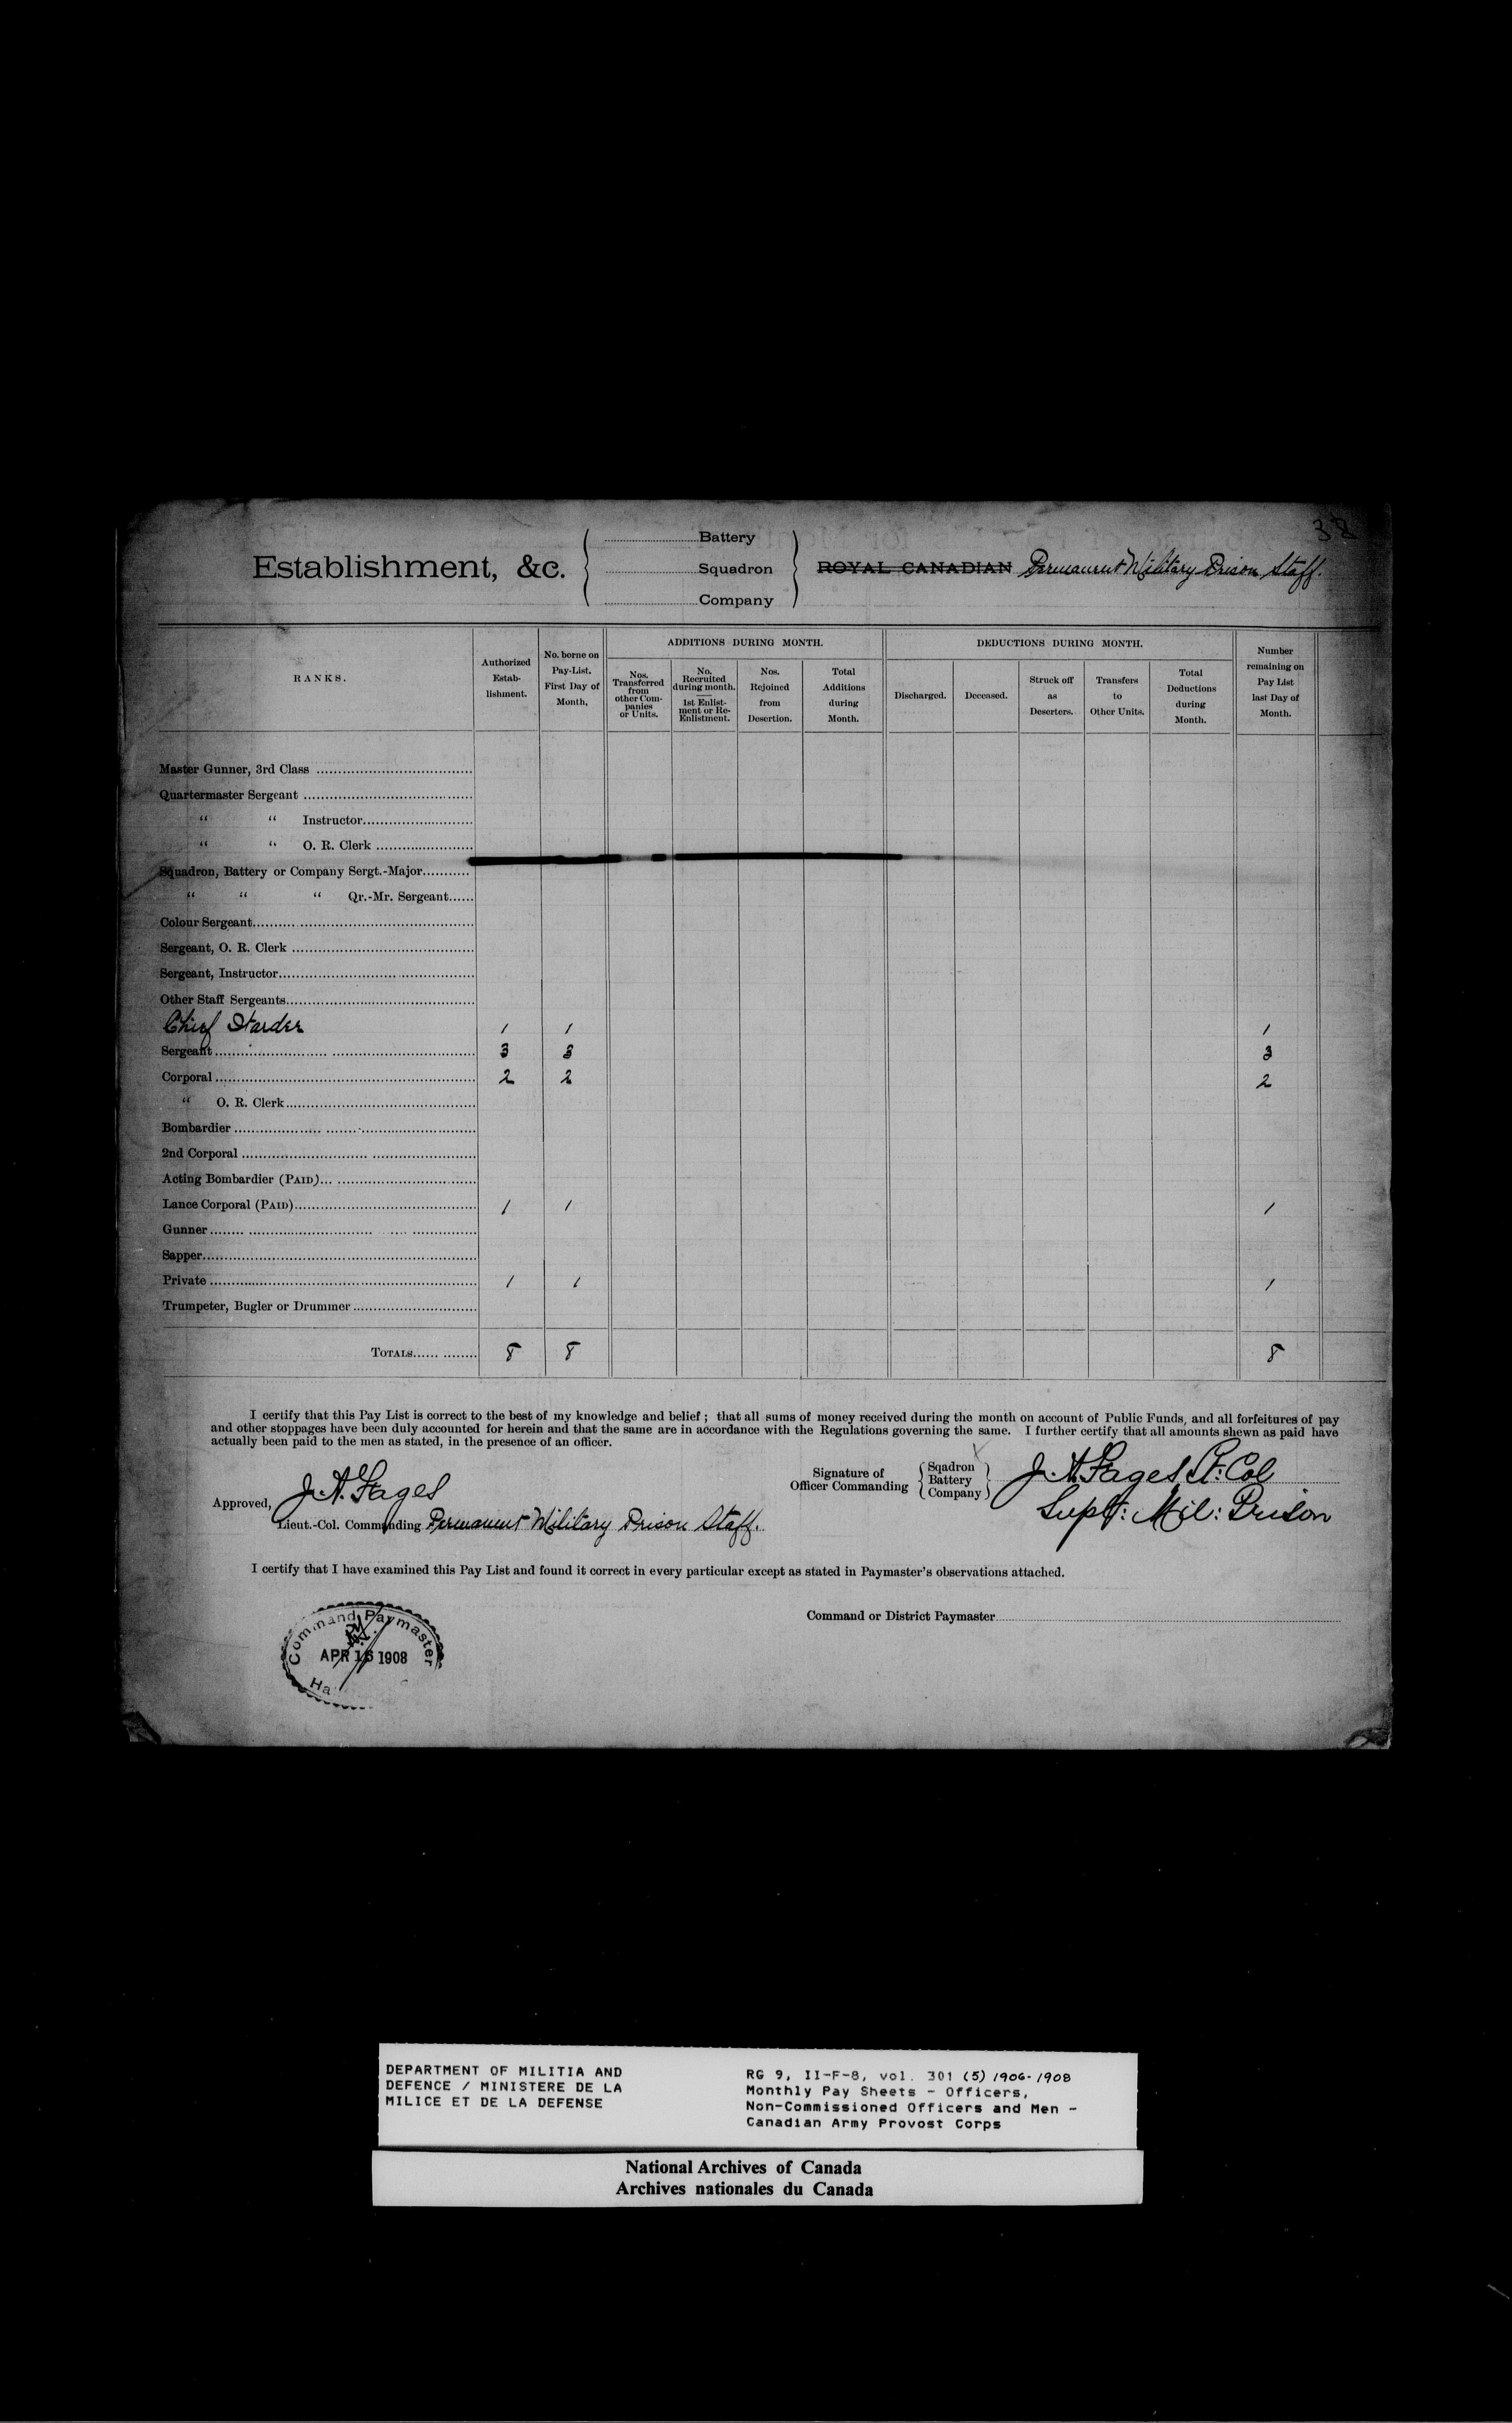 38
Establishment, &c.
Battery
Squadron
Company
ROYAL CANADIAN Permanent Military Prison Staff.
RANKS.
Authorized Estab- lishment.
No. borne on Pay-List, First Day of Month.
ADDITIONS DURING MONTH.
Nos. Transferred from other Com- panies or Units.
No. Recruited during month. 1st Enlist- ment or Re- Enlistment.
Nos. Rejoined from Desertion.
Total Additions during Month.
DEDUCTIONS DURING MONTH.
Discharged.
Deceased.
Struck off as Deserters.
Transfers to Other Units.
Total Deductions during Month.
Number remaining on Pay List last Day of Month.
Master Gunner, 3rd Class
Quartermaster Sergeant
“ “ Instructor
“ “ O. R. Clerk
Squadron, Battery or Company Sergt.-Major
“ “ “ Qr.-Mr. Sergeant
Colour Sergeant
Sergeant, O. R. Clerk
Sergeant, Instructor
Other Staff Sergeants
Chief Warder 1 1 1
Sergeant 3 3 3
Corporal 2 2 2
“ O. R. Clerk
Bombardier
2nd Corporal
Acting Bombardier (PAID)
Lance Corporal (PAID) 1 1 1
Gunner
Sapper
Private 1 1 1
Trumpeter, Bugler or Drummer
TOTALS 8 8 8
I certify that this Pay List is correct to the best of my knowledge and belief; that all sums of money received during the month on account of Public Funds, and all forfeitures of pay
and other stoppages have been duly accounted for herein and that the same are in accordance with the Regulations governing the same. I further certify that all amounts shewn as paid have
actually been paid to the men as stated, in the presence of an officer.
Signature of Officer Commanding
Sqadron
Battery
Company
J. A. Fages Lt. Col
Supt: Mil: Prison
Approved, J. A. Fages
Lieut.-Col. Commanding Permanent Military Prison Staff.
I certify that I have examined this Pay List and found it correct in every particular except as stated in Paymaster's observations attached.
Command or District Paymaster
Command Paymaster
APR 16 1908
Ha
DEPARTMENT OF MILITIA AND
DEFENCE / MINISTERE DE LA
MILICE ET DE LA DEFENSE
RG 9, II-F-8, vol. 301 (5) 1906-1908
Monthly Pay Sheets - Officers,
Non-Commissioned Officers and Men -
Canadian Army Provost Corps
National Archives of Canada
Archives nationales du Canada